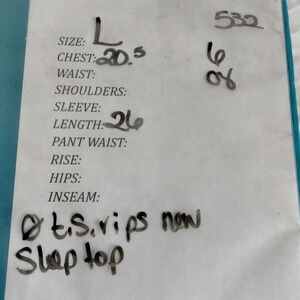 532
SIZE: L
CHEST: 20.5 6
WAIST: 08
SHOULDERS:
SLEEVE:
LENGTH: 26
PANT WAIST:
RISE:
HIPS:
INSEAM:
t.S. rips new
Sleep top